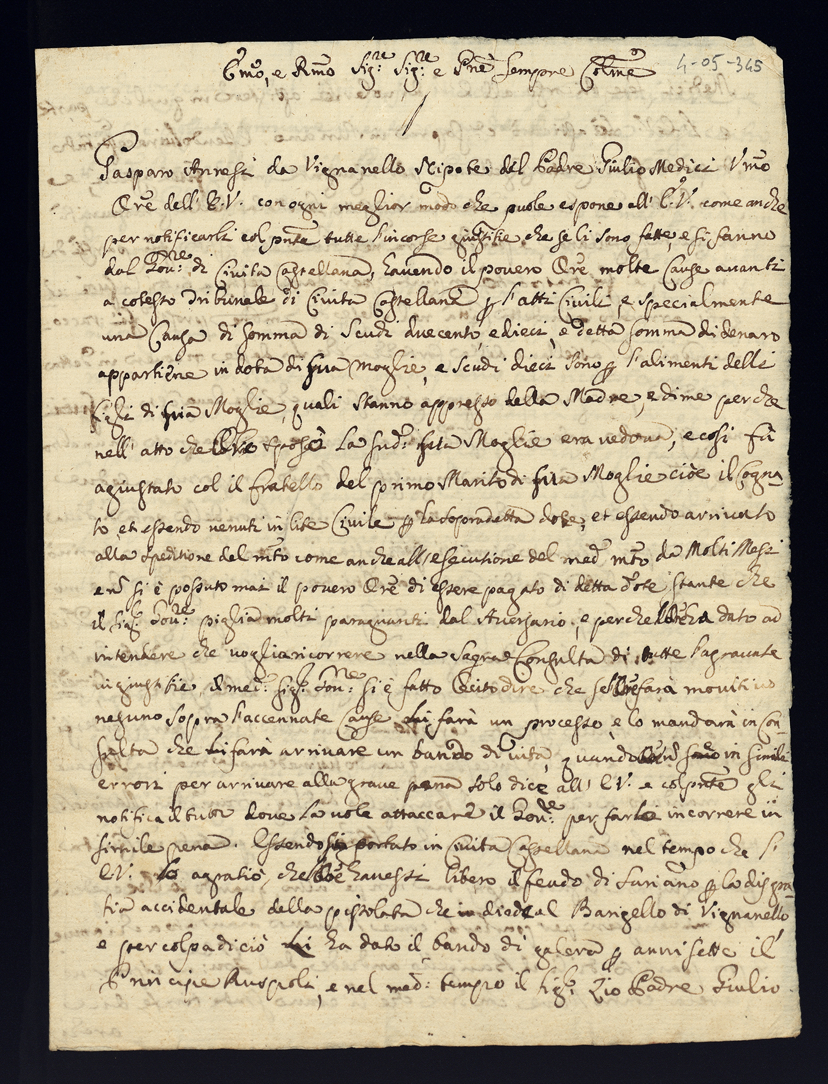 4-05-345
Emo, e Rmo Sig:re Sig:re e Pne Sempre Colmo
Gasparo Arressi da Vignanello Nipote del Padre Giulio Medici Vmo
Ore dell' E.V. con ogni meglior modo che puole espone all' E.V. come anche
per notificarli col pnte tutte l'incorse giustitie che se li sono fatte, e si fanno
dal Gov:re di Civita Castellana, havendo il povero Ore molte Cause avanti
a cotesto Tribunale di Civita Castellana p l'atti Civili, e specialmente
una Causa di somma di Scudi duecento, e dieci, e detta somma di denaro
appartiene in dota di sua moglie, e scudi dieci sono p l'alimenti delli
figli di sua Moglie, quali stanno appresso della Madre, e dime perche
nell' atto che sposò la sud: sua Moglie era vedova, e così fù
agiustato col il fratello del primo Marito di sua Moglie cioè il Cogna-
to, et essendo venuti in lite Civile p la sopradetta dote, et essendo arrivato
alla speditione del mto come anche all' esecutione del med: mto da Molti Mesi
e n si è possuto mai il povero Ore di essere pagato di detta dote stante che
il Sig: Gov:re piglia molti paraguanti dal Aversario, e perche dato ad
intendere che voglia ricorrere nella Sagra Consulta di tutte l'agravate
ingiustitie il med: Sig: Gov:re si è fatto Ocito dire che se farà movitivo
nesuno sopra l'accennate Cause Li farà un processo, e lo mandarà in Con-
sulta che Li farà arrivare un bando di vita, quando in simili
errori per arrivare alla grave pena solo dice all' E.V. e col pnte gli
notifica il tutto dove la vole attaccare il Gov:re per farlo incorrere in
simile pena. Essendosi portato in Civita Castellana nel tempo che l'
E.V. lo agratiò, che havessi libero il feudo di Suriano p la disgra-
tia accidentale della pistolata che diode al Barigello di Vignanello
e per colpa di ciò Li ha dato il bando di galera p anni sette il
Principe Ruspoli, e nel med: tempo il Sig: Zio Padre Giulio